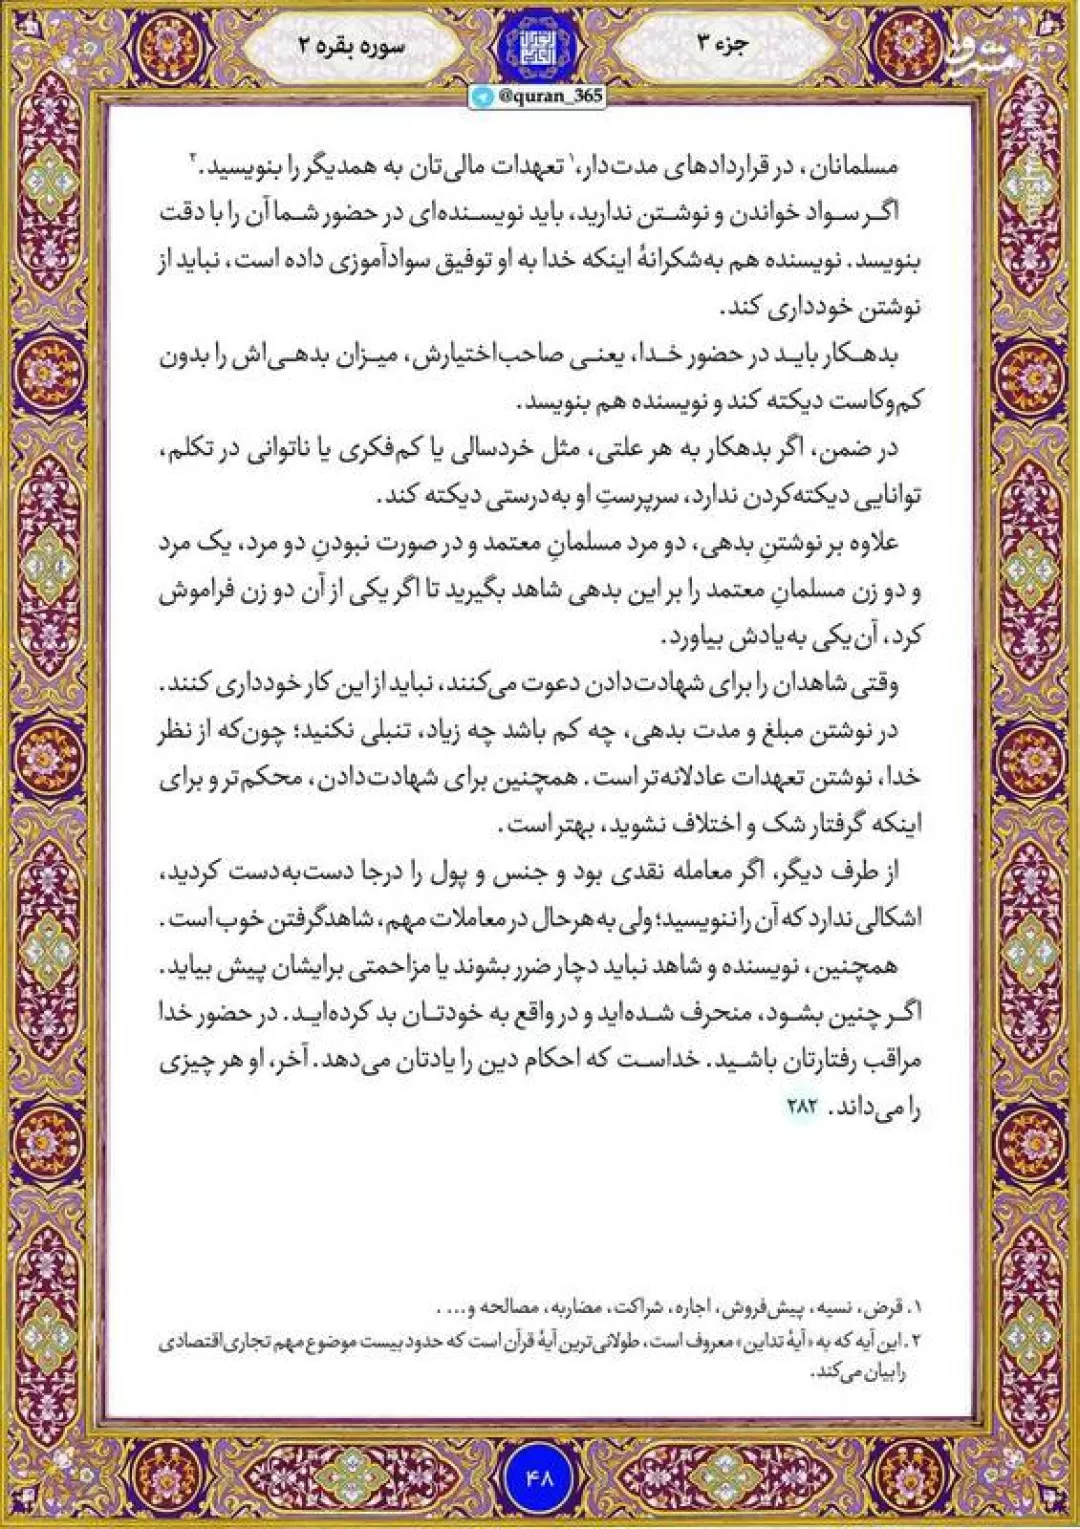 جزء ۳
سوره بقره ۲
@quran_365
مسلمانان، در قراردادهای مدت‌دار،۱ تعهدات مالی‌تان به همدیگر را بنویسید.۲
اگر سواد خواندن و نوشتن ندارید، باید نویسنده‌ای در حضور شما آن را با دقت
بنویسد. نویسنده هم به‌شکرانهٔ اینکه خدا به او توفیق سوادآموزی داده است، نباید از
نوشتن خودداری کند.
بدهکار باید در حضور خدا، یعنی صاحب‌اختیارش، میزان بدهی‌اش را بدون
کم‌وکاست دیکته کند و نویسنده هم بنویسد.
در ضمن، اگر بدهکار به هر علتی، مثل خردسالی یا کم‌فکری یا ناتوانی در تکلم،
توانایی دیکته‌کردن ندارد، سرپرستِ او به‌درستی دیکته کند.
علاوه بر نوشتنِ بدهی، دو مرد مسلمانِ معتمد و در صورت نبودنِ دو مرد، یک مرد
و دو زن مسلمانِ معتمد را بر این بدهی شاهد بگیرید تا اگر یکی از آن دو زن فراموش
کرد، آن‌یکی به‌یادش بیاورد.
وقتی شاهدان را برای شهادت‌دادن دعوت می‌کنند، نباید از این کار خودداری کنند.
در نوشتن مبلغ و مدت بدهی، چه کم باشد چه زیاد، تنبلی نکنید؛ چون‌که از نظر
خدا، نوشتن تعهدات عادلانه‌تر است. همچنین برای شهادت‌دادن، محکم‌تر و برای
اینکه گرفتار شک و اختلاف نشوید، بهتر است.
از طرف دیگر، اگر معامله نقدی بود و جنس و پول را درجا دست‌به‌دست کردید،
اشکالی ندارد که آن را ننویسید؛ ولی به‌هرحال در معاملات مهم، شاهدگرفتن خوب است.
همچنین، نویسنده و شاهد نباید دچار ضرر بشوند یا مزاحمتی برایشان پیش بیاید.
اگر چنین بشود، منحرف شده‌اید و در واقع به خودتان بد کرده‌اید. در حضور خدا
مراقب رفتارتان باشید. خداست که احکام دین را یادتان می‌دهد. آخر، او هر چیزی
را می‌داند. ۲۸۲
۱. قرض، نسیه، پیش‌فروش، اجاره، شراکت، مضاربه، مصالحه و... .
۲. این آیه که به «آیهٔ تداین» معروف است، طولانی‌ترین آیهٔ قرآن است که حدود بیست موضوع مهم تجاری اقتصادی
را بیان می‌کند.
۴۸